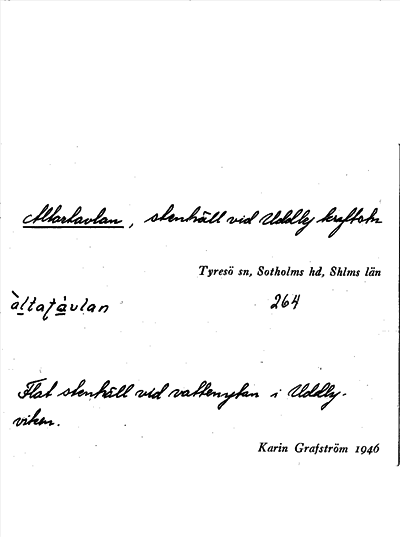 Altartavlan, stenhäll vid Uddby kraftstn
Tyresö sn, Sotholms hd, Shlms län
àltatàvlan 264
Flat stenhäll vid vattenytan i Uddby-
viken.
Karin Grafström 1946